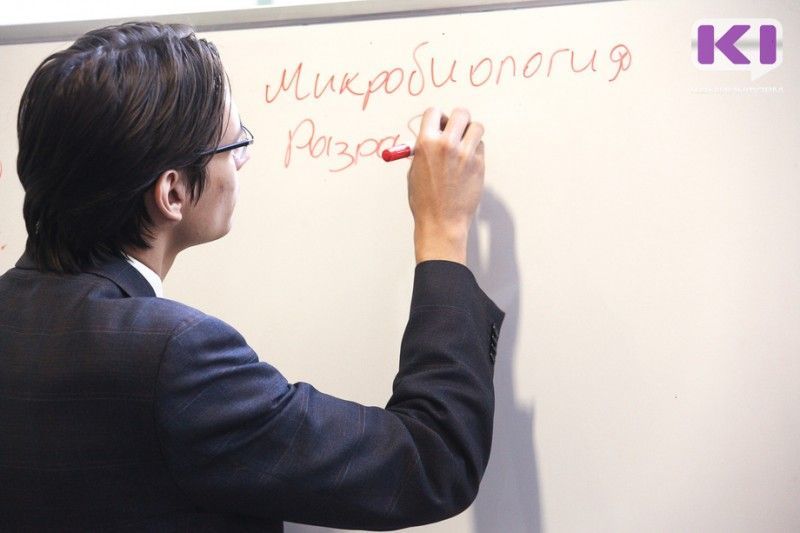 Микробиология
Разраб
KI